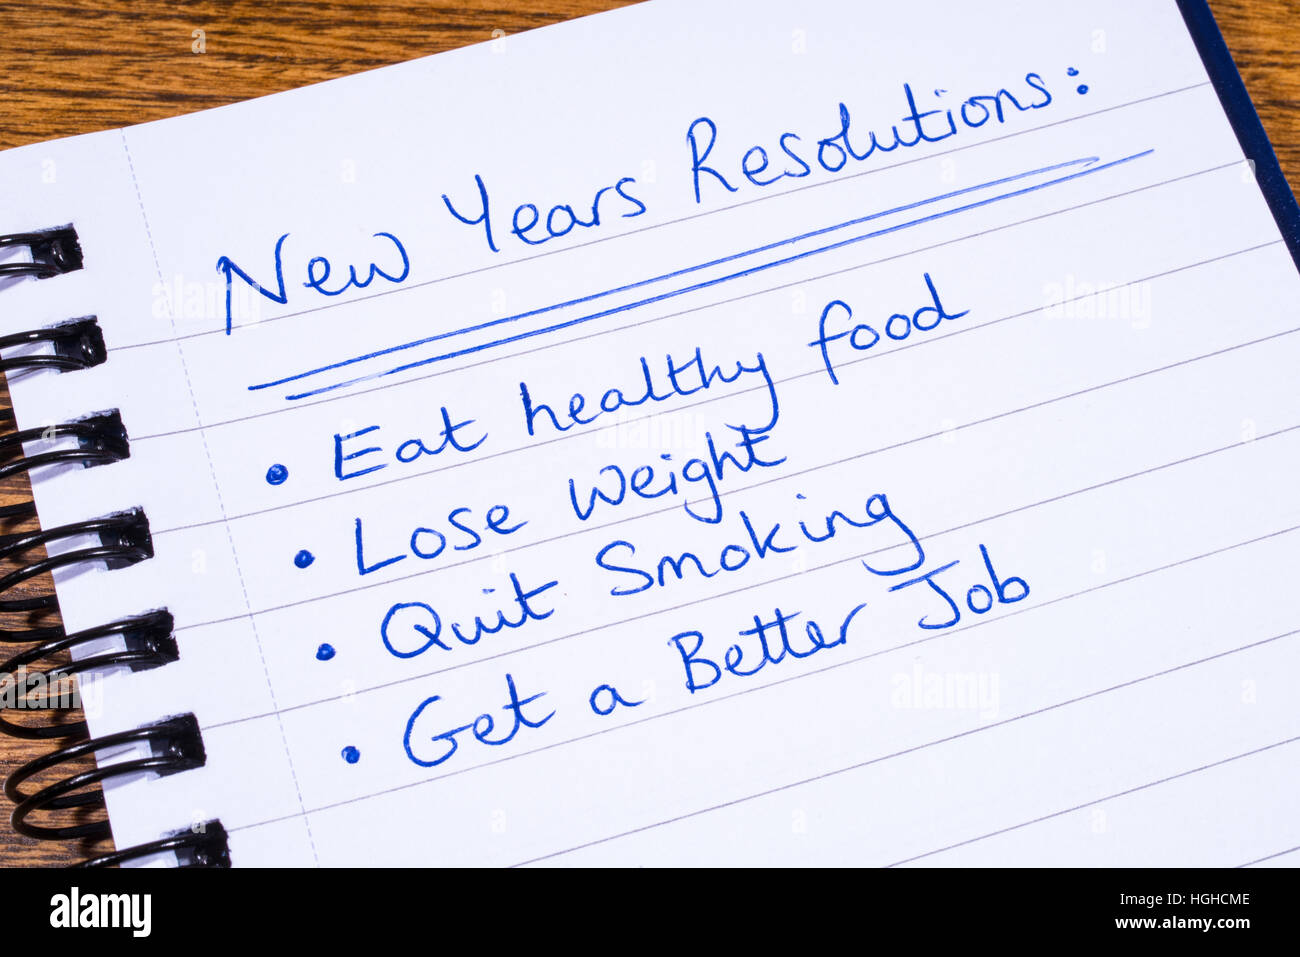 New Years Resolutions:
• Eat healthy food
• Lose weight
• Quit Smoking
• Get a Better Job
alamy
Image ID: HGHCME
www.alamy.com